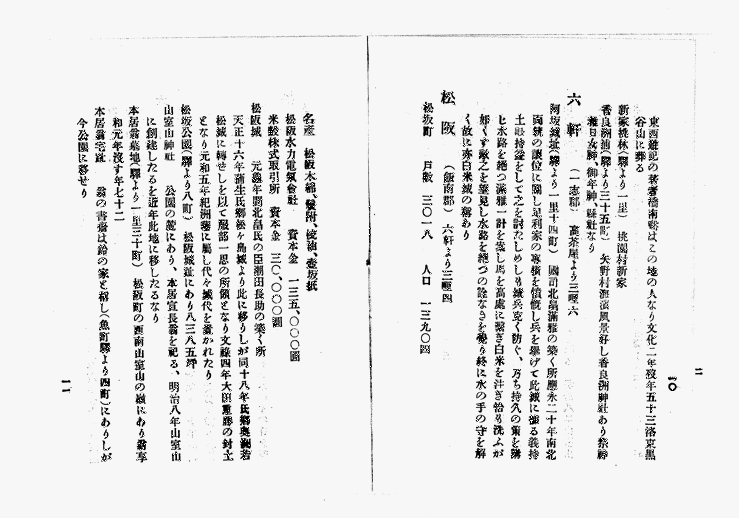 東西遊記の著者橘南谿はこの地の人なり文化二年歿年五十三洛東黒
谷山に葬る
新家桃林(驛より一里) 桃園村新家
香良洲浦(驛より三十五町) 矢野村海濱風景好し香良洲神社あり祭神
稚日女神、御年神、縣社なり
六軒 (一志郡) 高茶屋より三哩六
阿坂城址(驛より一里十四町) 國司北畠滿雅の築く所應永二十年南北
兩統の讓位に關し足利家の專橫を憤慨し兵を擧げて此城に據る義持
土岐持益をして之を討たしめしも城兵克く防ぐ、乃ち持久の策を講
じ水路を絶つ滿雅一計を案し馬を高處に繋ぎ白米を注ぎ恰も洗ふが
如くす敵之を望見し水路を絶つの詮なきを覺り終に水の手の守を解
く故に亦白米城の稱あり
松阪 (飯南郡) 六軒より三哩四
松坂町 戸數 三〇一八 人口 一三九〇四
一〇
名産 松阪木綿、鬢附、梳油、壺坂紙
松阪水力電氣會社 資本金 一三五、〇〇〇圓
米穀株式取引所 資本金 三〇、〇〇〇圓
松阪城 元龜年間北畠氏の臣潮田長助の築く所
天正十六年蒲生氏鄕松ヶ島城より此に移りしが同十八年氏鄕奥洲若
松城に轉せしを以て服部一忠の所領となり文祿四年大田重勝の封土
となり元和五年紀洲藩に屬し代々城代を置かれたり
松坂公園(驛より八町) 松阪城址にあり八三八五坪
山室山神社 公園の麓にあり、本居宣長翁を祀る、明治八年山室山
に創建したるを近年此地に移したるなり
本居翁墓地(驛より一里三十町) 松阪町の西南山室山の嶺にあり翁享
和元年沒す年七十二
本居翁宅趾 翁の書齋は鈴の家と稱し(魚町驛より四町)にありしが
今公園に移せり
一一